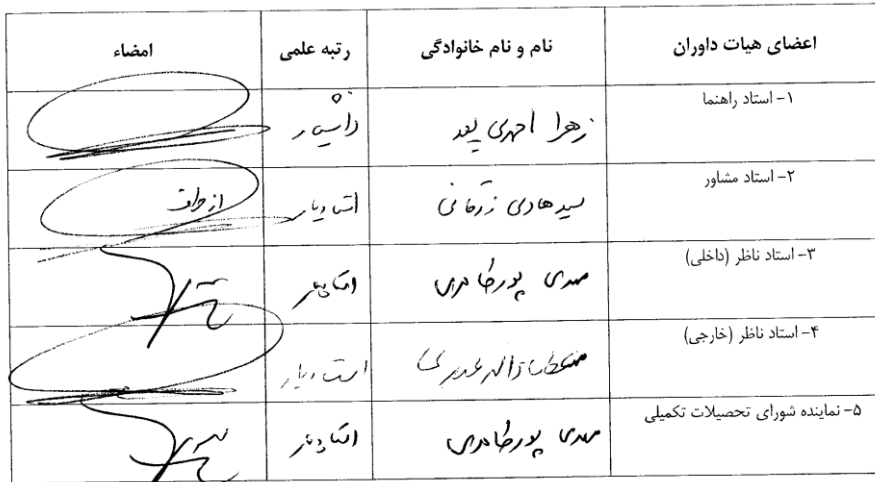 اعضای هیات داوران نام و نام خانوادگی رتبه علمی امضاء
۱- استاد راهنما زهرا احمدی پور دانشیار
۲- استاد مشاور سید هادی زرقانی استادیار از طرف
۳- استاد ناظر (داخلی) مهدی پورطاهری استادیار
۴- استاد ناظر (خارجی) استادیار
۵- نماینده شورای تحصیلات تکمیلی مهدی پورطاهری استادیار